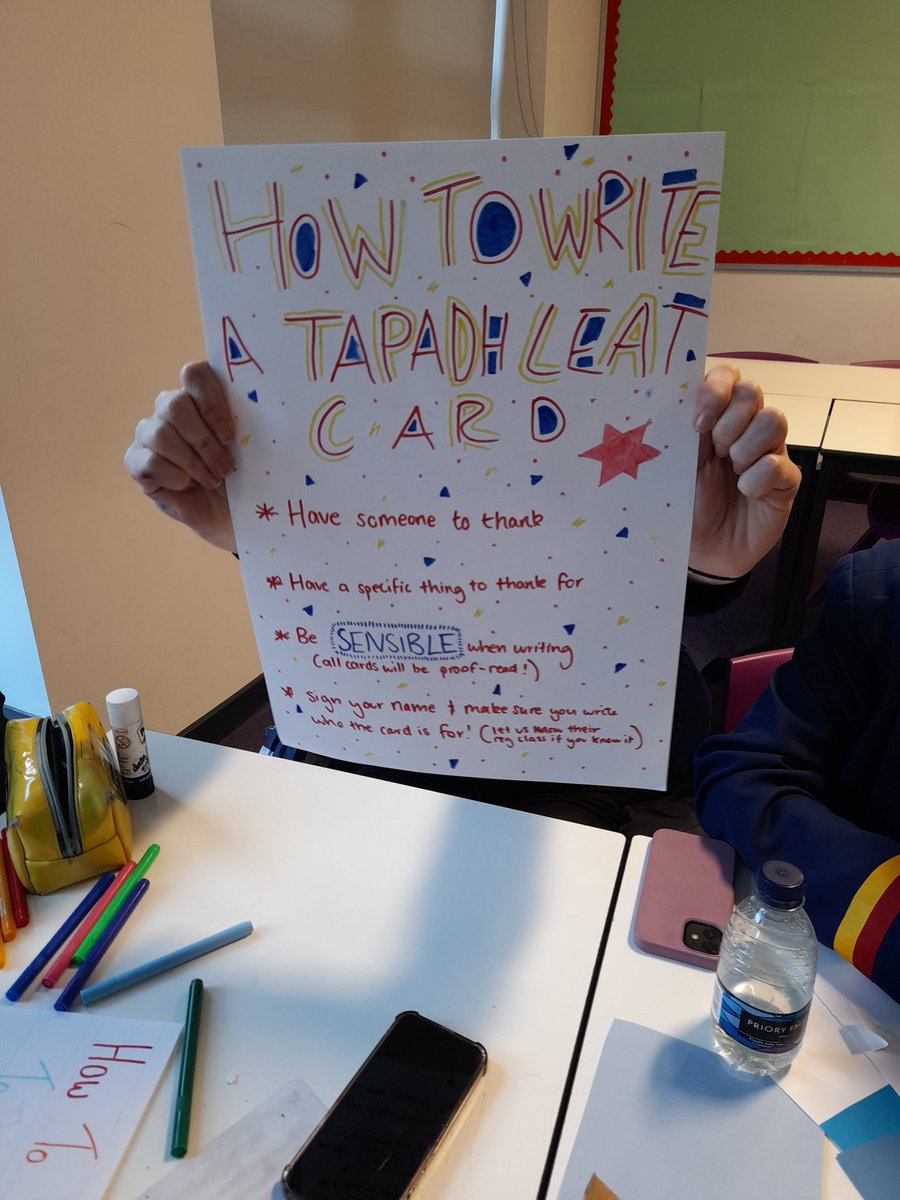 HOW TO WRITE
A TAPADH LEAT
CARD
* Have someone to thank
* Have a specific thing to thank for
* Be SENSIBLE when writing
(all cards will be proof-read!)
* Sign your name & make sure you write
who the card is for! (let us know their
reg class if you know it)
PRIORY
How To
To